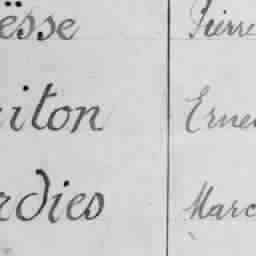 ësse Pierre
iton Erne
rdies Marc